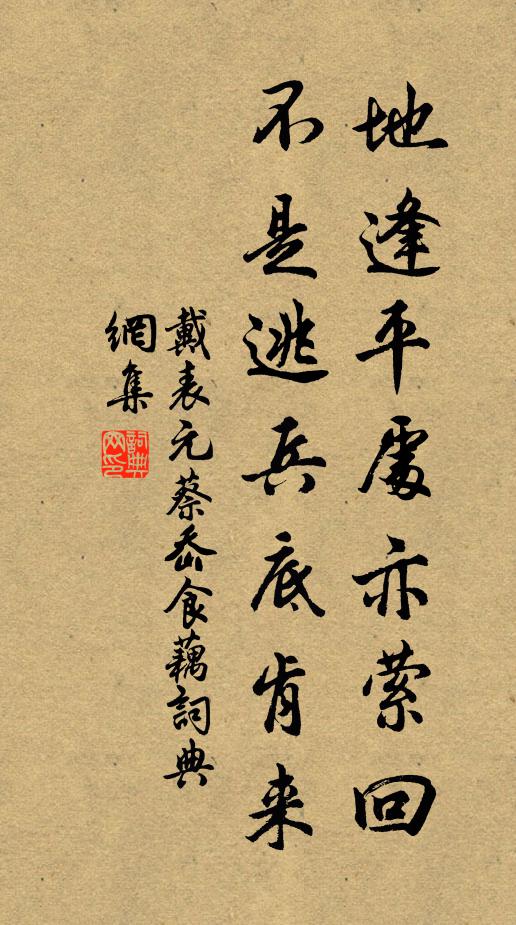 地逢平處亦萦回
不是逃兵底肯来
戴表元蔡岙食藕詞典
網集
詞典网印